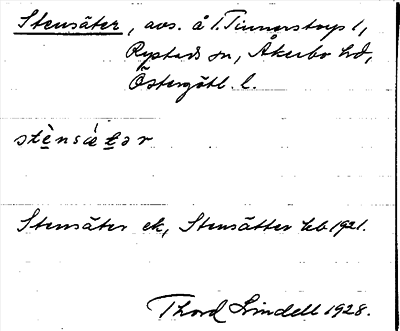 Stensäter, avs. å T. Tinnerstorp 1,
Rystads sn, Åkerbo hd,
Östergötl. l.
stènsæ̀tər
Stensäter ek, Stensätter hb 1921.
Thord Lindell 1928.